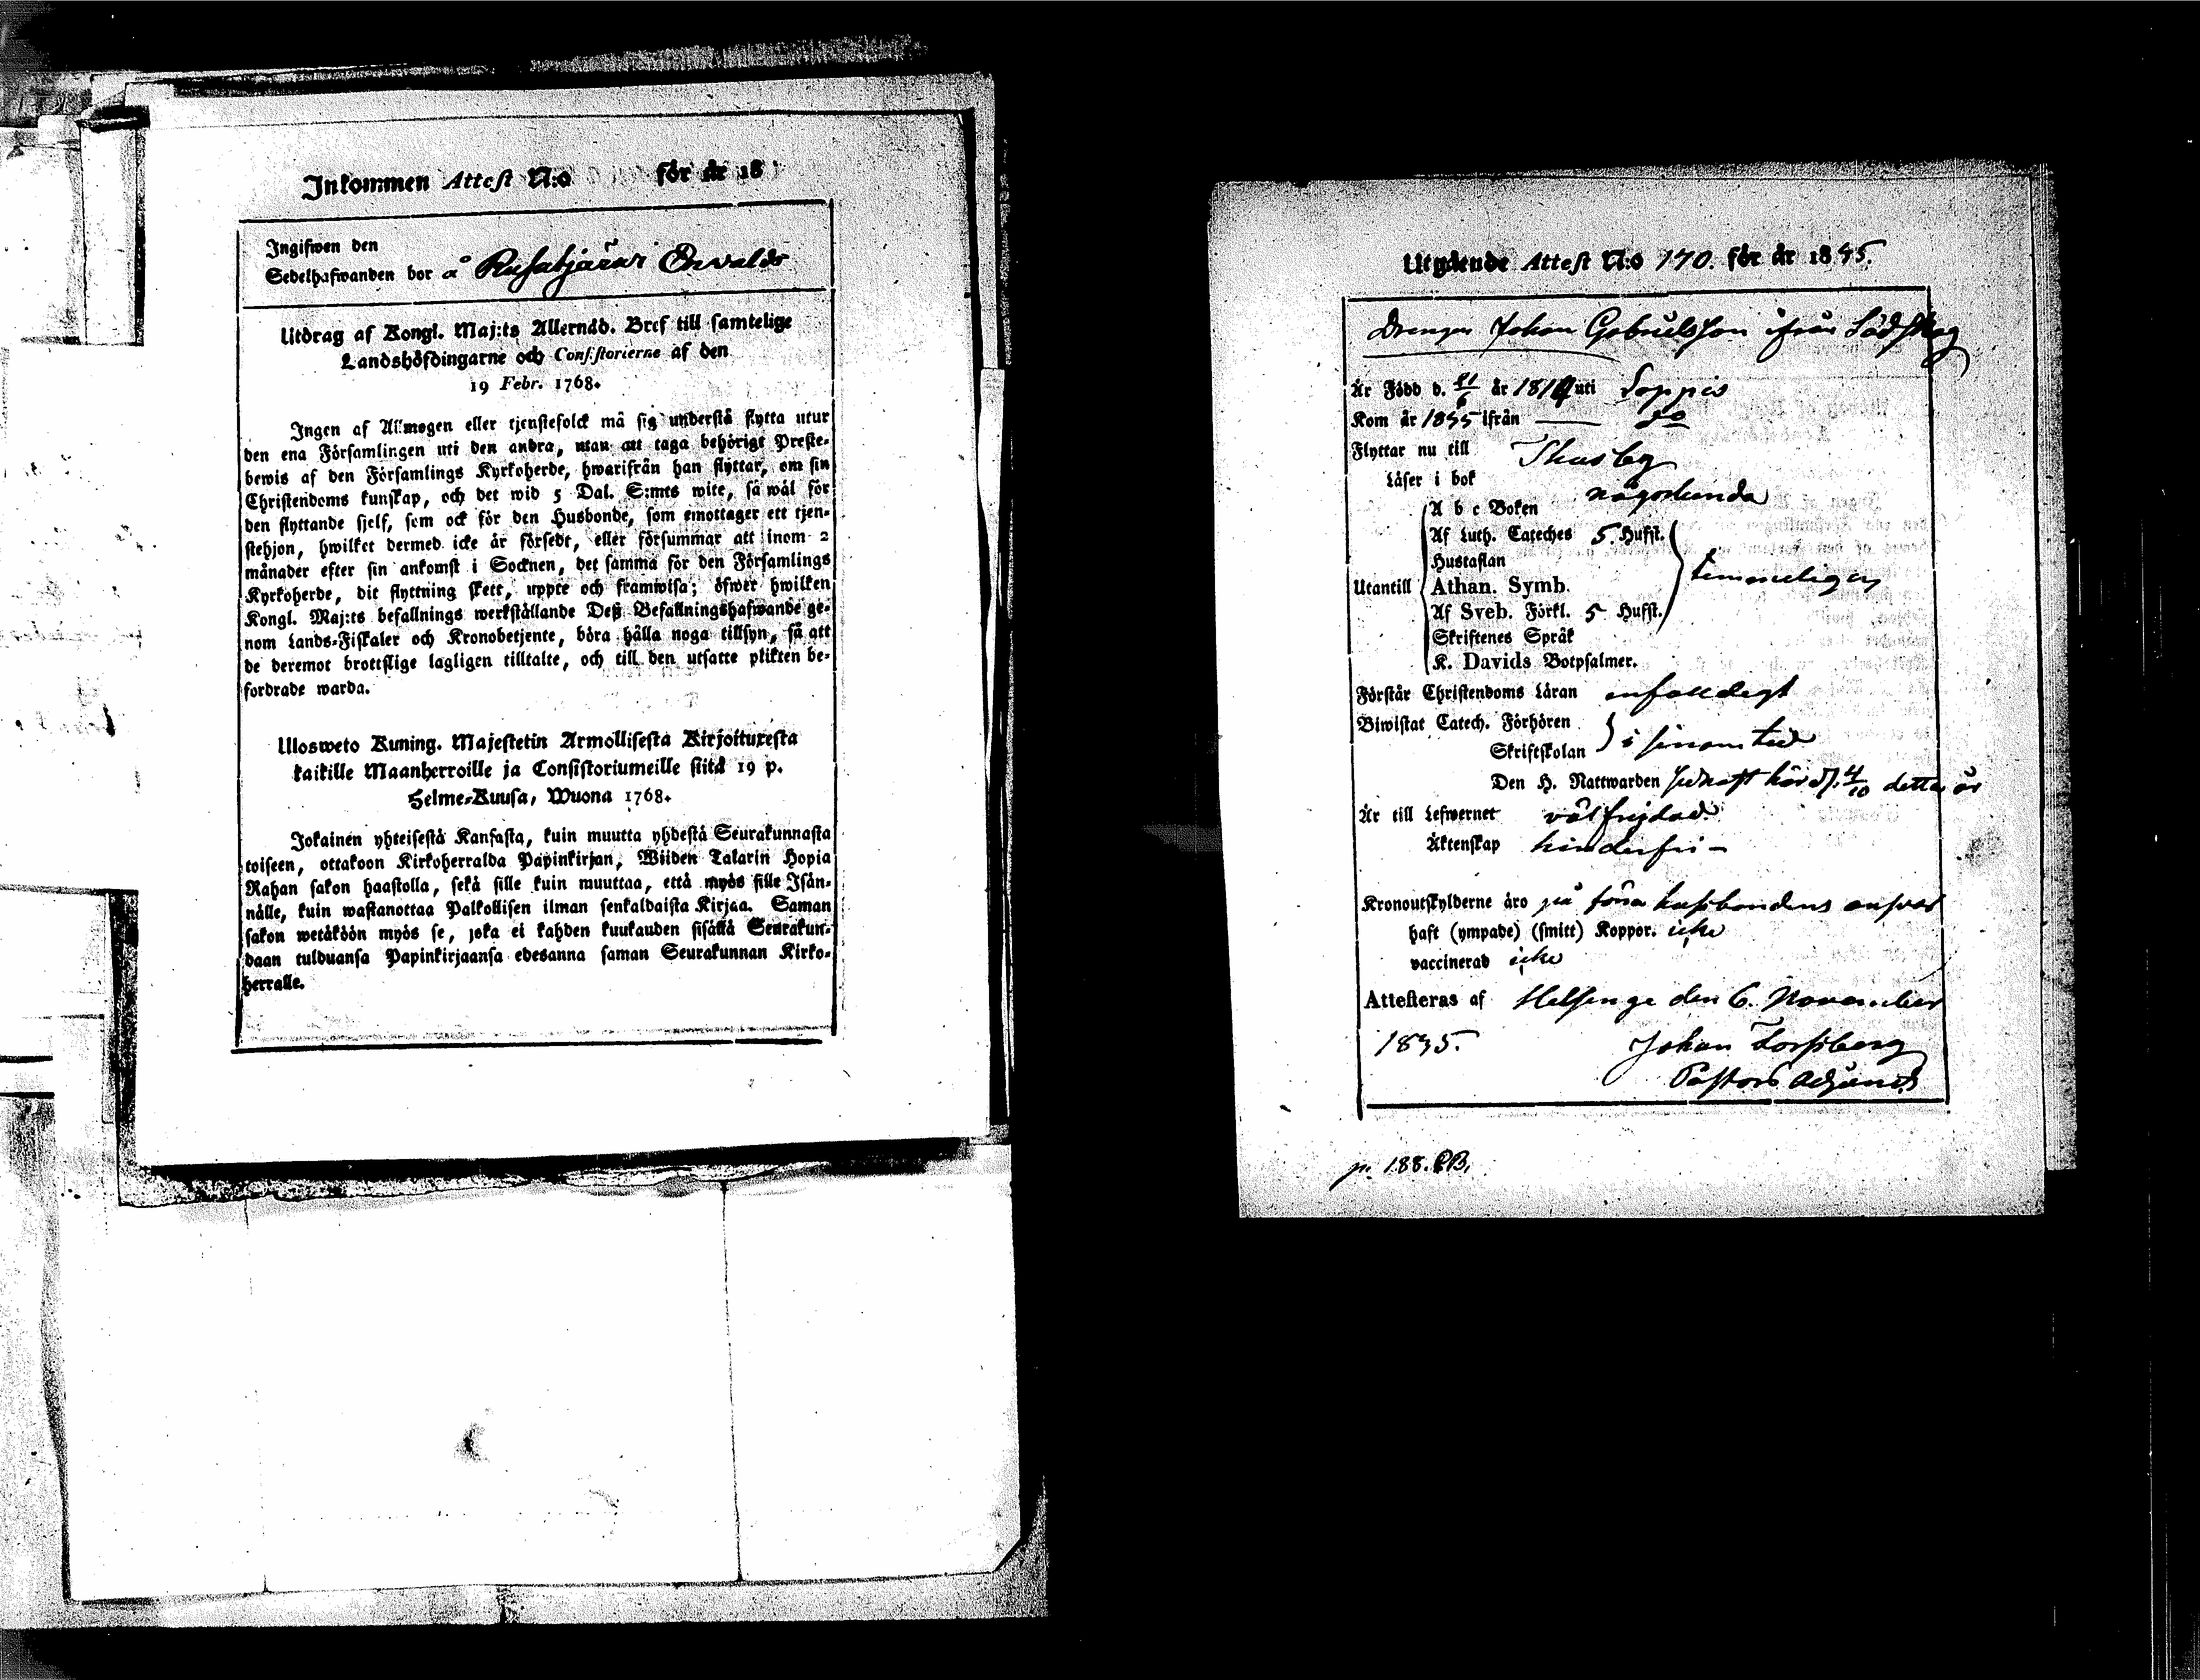 Inkommen Attest N:o för år 18
Ingifwen den
Sedelhafwanden bor å Rusabjärwi Ewalds
Utdrag af Kongl. Maj:ts Allernåd. Bref till samtelige
Landshöfdingarne och Consistorierne af den
19 Febr. 1768.
Ingen af Allmogen eller tjenstefolck må sig understå flytta utur
den ena Församlingen uti den andra, utan att taga behörigt Preste-
bewis af den Församlings Kyrkoherde, hwarifrån han flyttar, om sin
Christendoms kunskap, och det wid 5 Dal. S:mts wite, så wäl för
den flyttande sjelf, som ock för den Husbonde, som emottager ett tjen-
stehjon, hwilket dermed icke är försedt, eller försummar att inom 2
månader efter sin ankomst i Socknen, det samma för den Församlings
Kyrkoherde, dit flyttning skett, uppte och framwisa; öfwer hwilken
Kongl. Maj:ts befallnings werkställande Deß Befallningshafwande ge-
nom Lands-Fiskaler och Kronobetjente, böra hålla noga tillsyn, så att
de deremot brottslige lagligen tilltalte, och till den utsatte plikten be-
fordrade warda.
Ulosweto Kuning. Majestetin Armollisesta Kirjoituxesta
kaikille Maanherroille ja Consistoriumeille siitä 19 p.
Helme-Kuusa, Wuona 1768.
Jokainen yhteisestä Kansasta, kuin muutta yhdestä Seurakunnasta
toiseen, ottakoon Kirkoherralda Papinkirjan, Wiiden Talarin Hopia
Rahan sakon haastolla, sekä sille kuin muuttaa, että myös sille Isän-
nälle, kuin wastanottaa Palkollisen ilman senkaldaista Kirjaa. Saman
sakon wetäköön myös se, joka ei kahden kuukauden sisällä Seurakun-
daan tulduansa Papinkirjaansa edesanna saman Seurakunnan Kirko-
herralle.
Utgående Attest N:o 170. för år 1835.
Drengen Johan Gabrielsson ifrån Lådskog
Är Född d. 21/6 år 1814 uti Loppis
Kom år 1835 ifrån — do
Flyttar nu till Thusby
Läser i bok någorlunda
A b c Boken
Af Luth. Cateches 5. Hufst.
Hustaflan
Utantill Athan. Symb. temmeligen
Af Sveb. Förkl. 5 Hufst.
Skriftenes Språk
K. Davids Botpsalmer.
Förstår Christendoms Läran enfaldigt
Biwistat Catech. Förhören
Skriftskolan i sinom tid
Den H. Nattwarden sednast här d. 4/10 detta år
Är till Lefwernet välfrejdad
Äktenskap hinderfri –
Kronoutskylderne äro på förra husbondens answar
haft (ympade) (smitt) Koppor. icke
vaccinerad icke
Attesteras af Helsinge den 6. November
1835. Johan Forsberg
Pastors Adjunct
p. 188. CB.